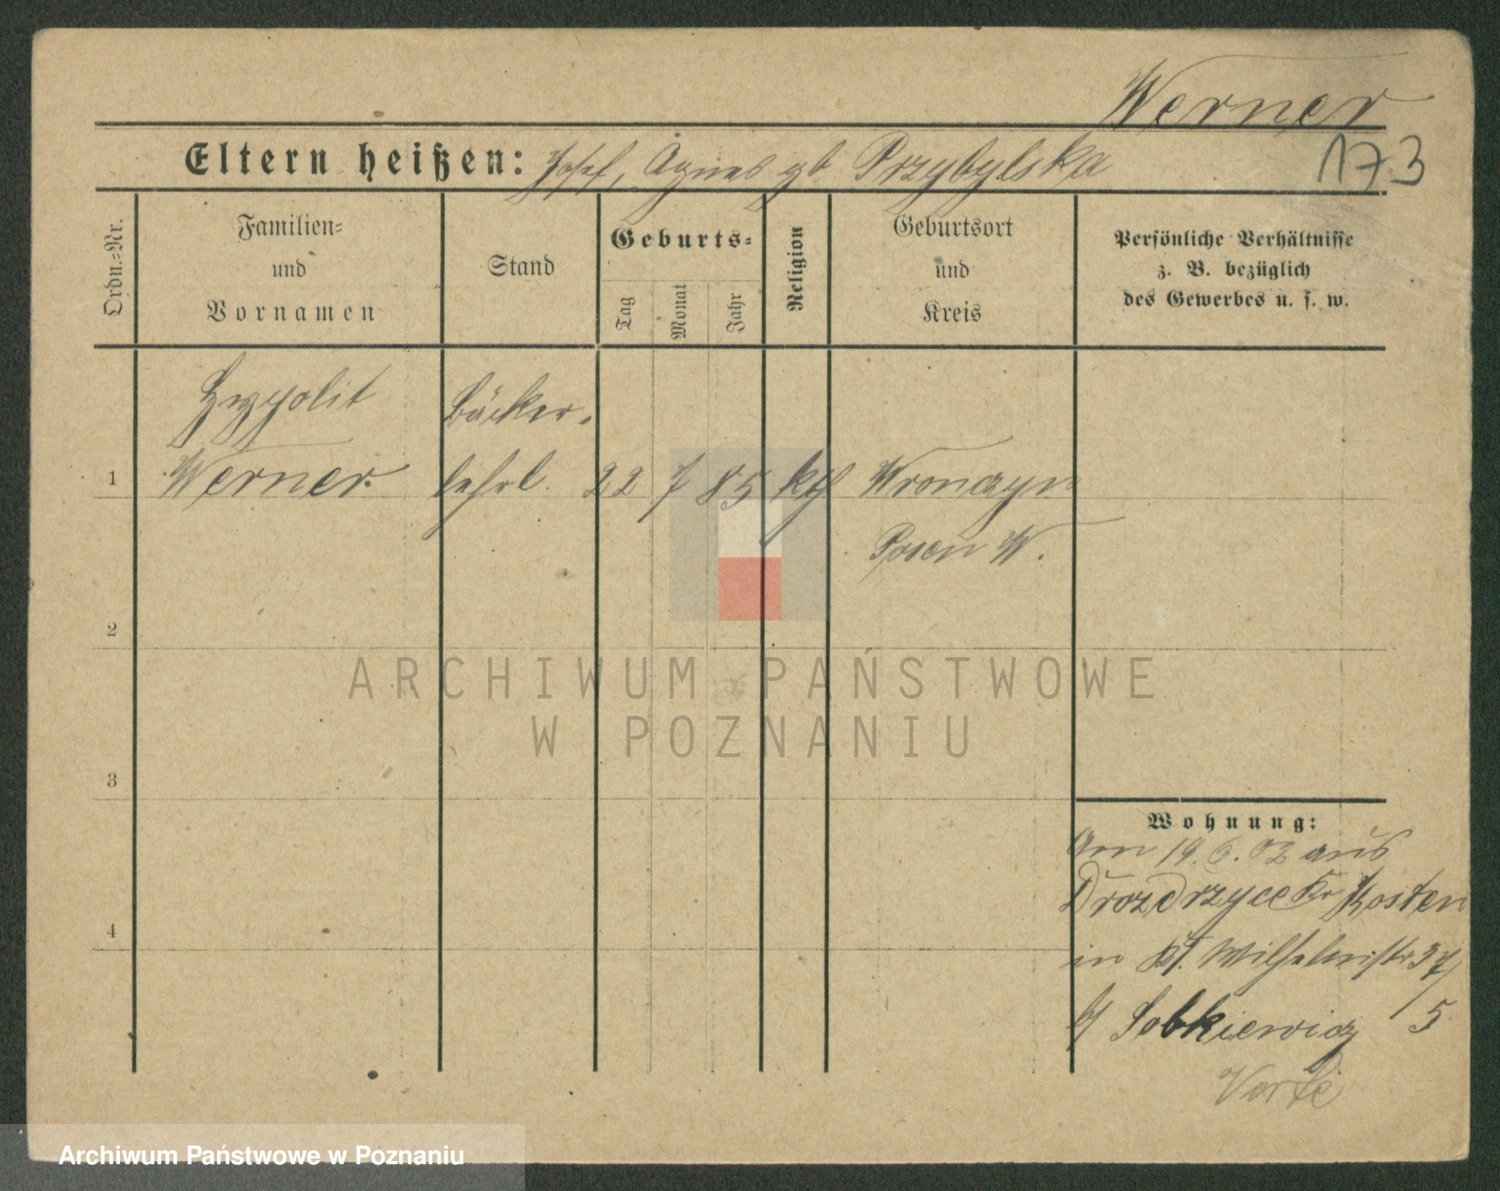 Werner
173
Eltern heißen: Josef, Agnes gb Przybylska
Ordn.-Nr.
Familien-
und
Vornamen
Stand
Geburts-
Tag
Monat
Jahr
Religion
Geburtsort
und
Kreis
Persönliche Verhältnisse
z. B. bezüglich
des Gewerbes u. s. w.
Hyppolit Bäcker-
1 Werner lehrl. 22 7 85 kth Wronczyn
Posen W.
2
3
4
Wohnung:
Am 19.6.02 aus
Drozdrzyce Kr Kosten
in Wilhelmstr 37/
b/ Sobkiewicz 5
ARCHIWUM PAŃSTWOWE
W POZNANIU
Archiwum Państwowe w Poznaniu